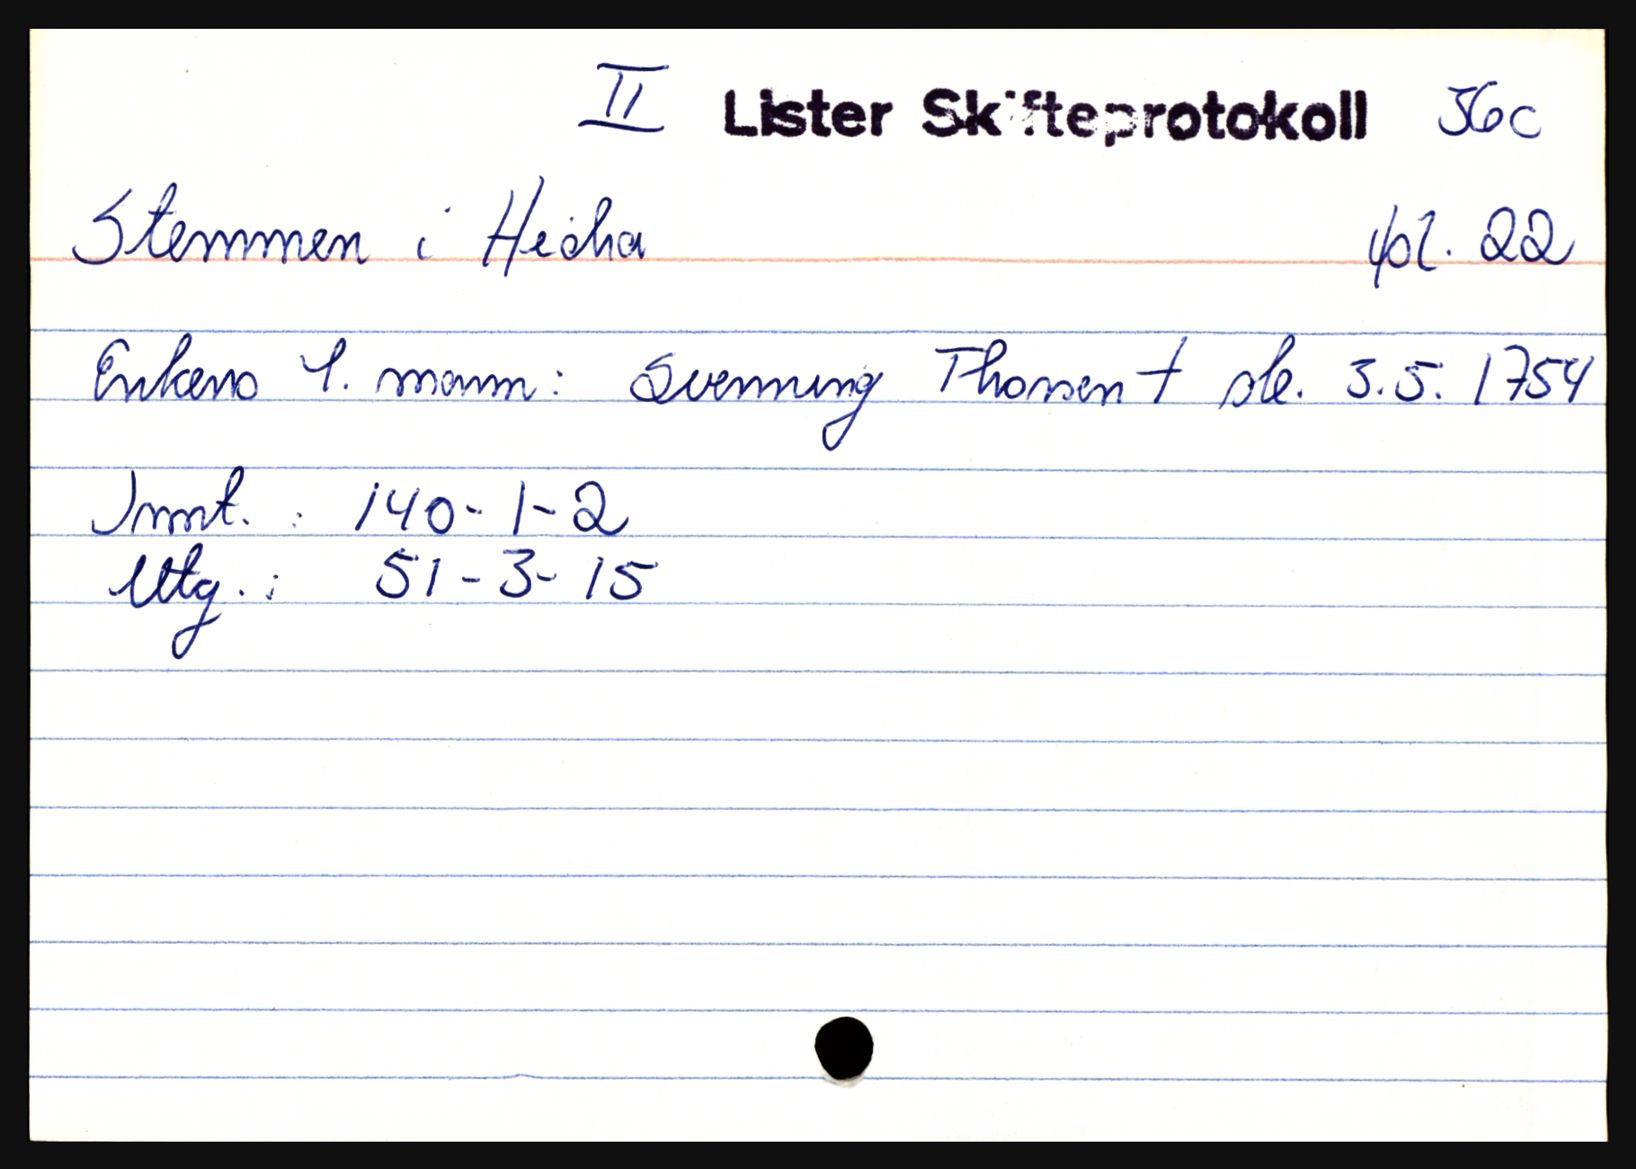 II Lister Skifteprotokoll 36c
Stemmen i Hidra fol. 22
Enkens 1. mann: Svenning Thorsen † sk. 3.5. 1754
Innt. : 140-1-2
Utg. : 51-3-15